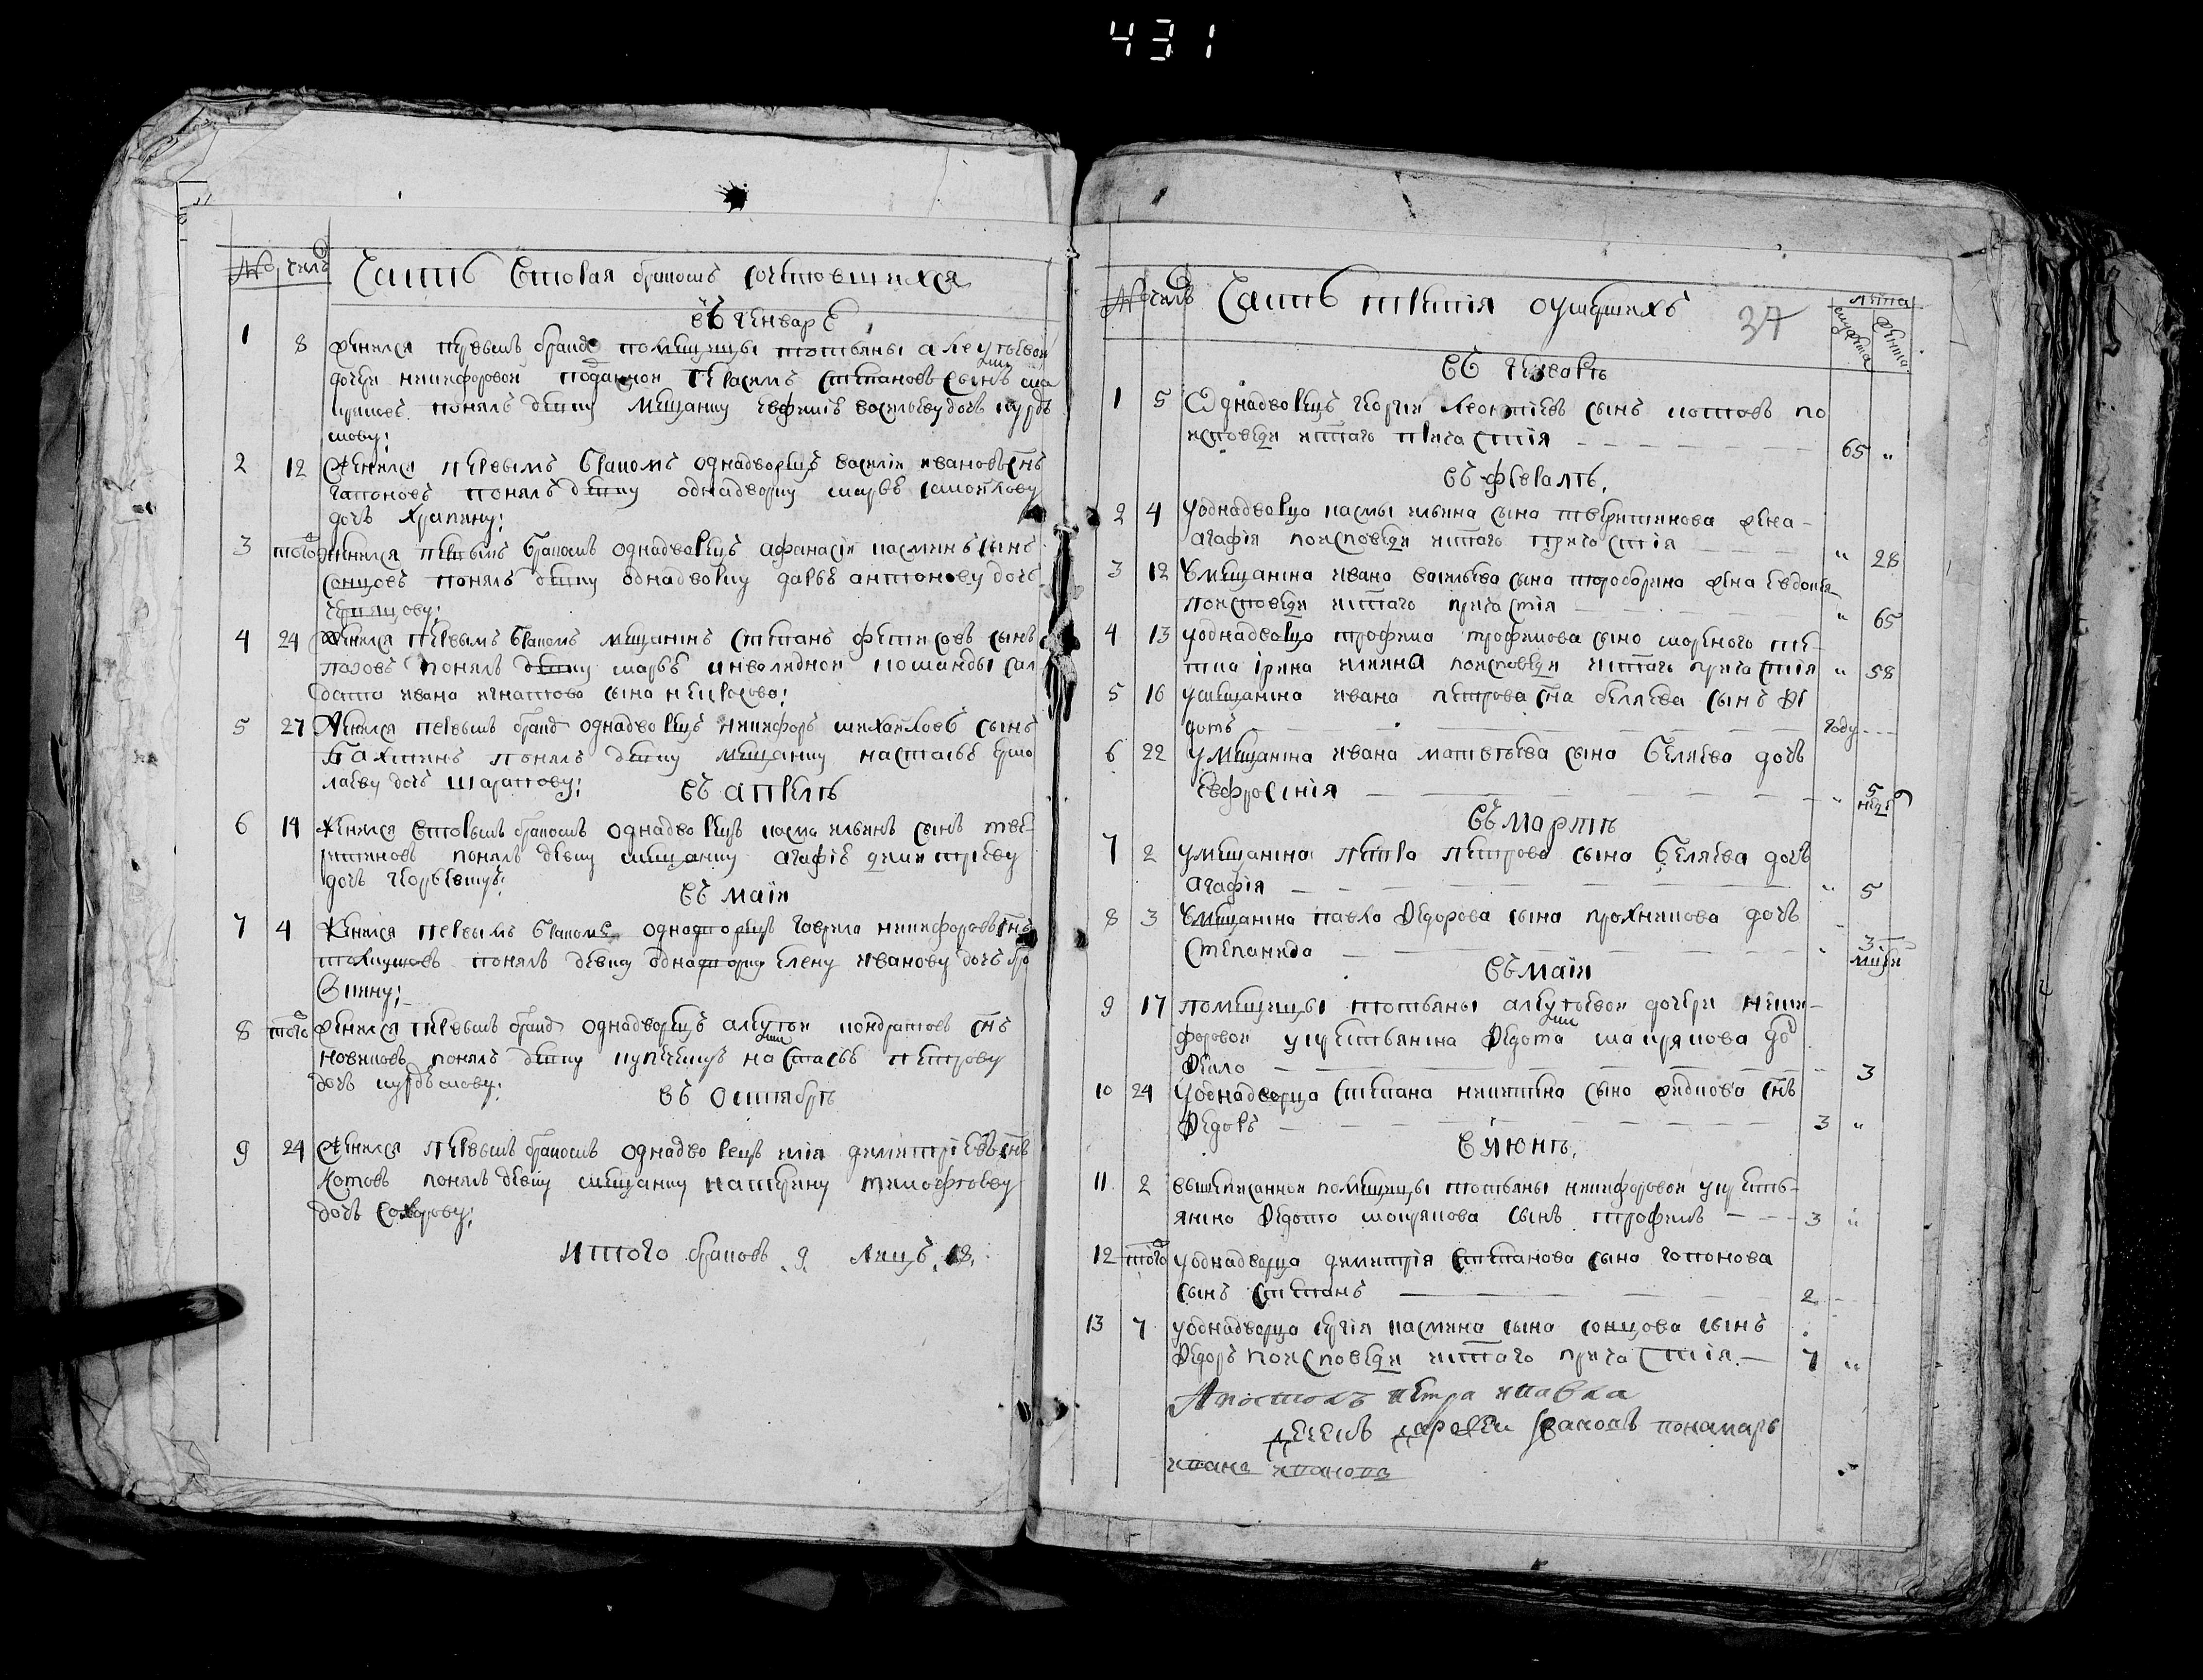 431
№ числ Часть вторая бракомъ сочетовшихся
въ генваре
1 8 женился первымъ брако помещицы татьяны алексѣевой
дочери никифоровой подданной герасимъ степановъ сынъ
понялъ девку мещанку евфимью васильеву дочь курдю
мову;
2 12 Женился первымъ бракомъ однадворецъ василии ивановъ снъ
гапоновъ понялъ девку однадворку марѳу самоилову
дочь хрипкину;
3 того женился первымъ бракомъ однадворецъ афанасіи касминъ сынъ
сонцовъ понялъ девку однадворку дарью антонову дочь
4 24 Женился первымъ бракомъ мещанинъ степанъ сынъ
понялъ девку марью инвалидной команды сал
дата ивана игнатова сына некрасова;
5 27 Женился первымъ брако однадворецъ никифоръ михаиловъ сынъ
бахтинъ понялъ девку мещанку настасью ермо
лаеву дочь шарапову; въ апрелѣ
6 14 Женился вторымъ бракомъ однадворецъ касма ильинъ сынъ тве
ритиновъ понялъ девку мещанку агафью димитріеву
дочь
въ маіи
7 4 Женился первымъ бракомъ однадворецъ гаврила никифоровъ снъ
понялъ девку однадворку елену иванову дочь бро
вкину;
8 того женился первымъ брако однадворецъ алексѣи кондратовъ снъ
новиковъ понялъ девку купеческую настасью петрову
дочь курдюмову;
въ октябрѣ
9 24 Женился первымъ бракомъ однадворецъ илія димитріевъ снъ
Котовъ понялъ девку мещанку катерину тимофѣеву
дочь
итого браковъ 9 лицъ 18
№ числъ Часть третія оумершихъ 37 лѣта
въ генварѣ
1 5 Однадворецъ георгии леонтіевъ сынъ котовъ по
исповеди истаго причастія 65 „
въ февралѣ
2 4 У однадворца касмы ильина сына тверитинова жена
агафія поисповеди истаго причастія „ 28
3 12 Умещанина ивана васильева сына жена евдокія
поисповеди истаго причастія „ 65
4 13 У однадворца трофима трофимова сына
ірина поисповеди истаго причастія „ 58
5 16 умещанина ивана петрова сна беляева сынъ Ѳе
дотъ году
6 22 Умещанина ивана матвѣева сына беляева дочь
Евфросинія „ 5 недѣ
въ мартѣ
7 2 умещанина петра петрова сына беляева дочь
агафія „ 5
8 3 Умещанина павла Ѳедорова сына дочь
степанида „ 3
въ маіи
9 17 помещицы татьяны алексѣевой дочери ники
форовой у крестьянина Ѳедота до
Ѳекла „ 3
10 24 Уоднадворца степана никитина сына снъ
Ѳедоръ 3 „
въ июнѣ
11 2 вышеписанной помещицы татьяны никифоровой у кресть
янина Ѳедота сынъ трофимъ 3 „
12 того уоднадворца димитрія степанова сына гапонова
сынъ степанъ 2
13 7 уоднадворца сергія касмина сына сонцова сынъ
Ѳедоръ поисповеди истаго причастія 7 „
Апостолъ петра и павла
пономарь
иванъ ивановъ